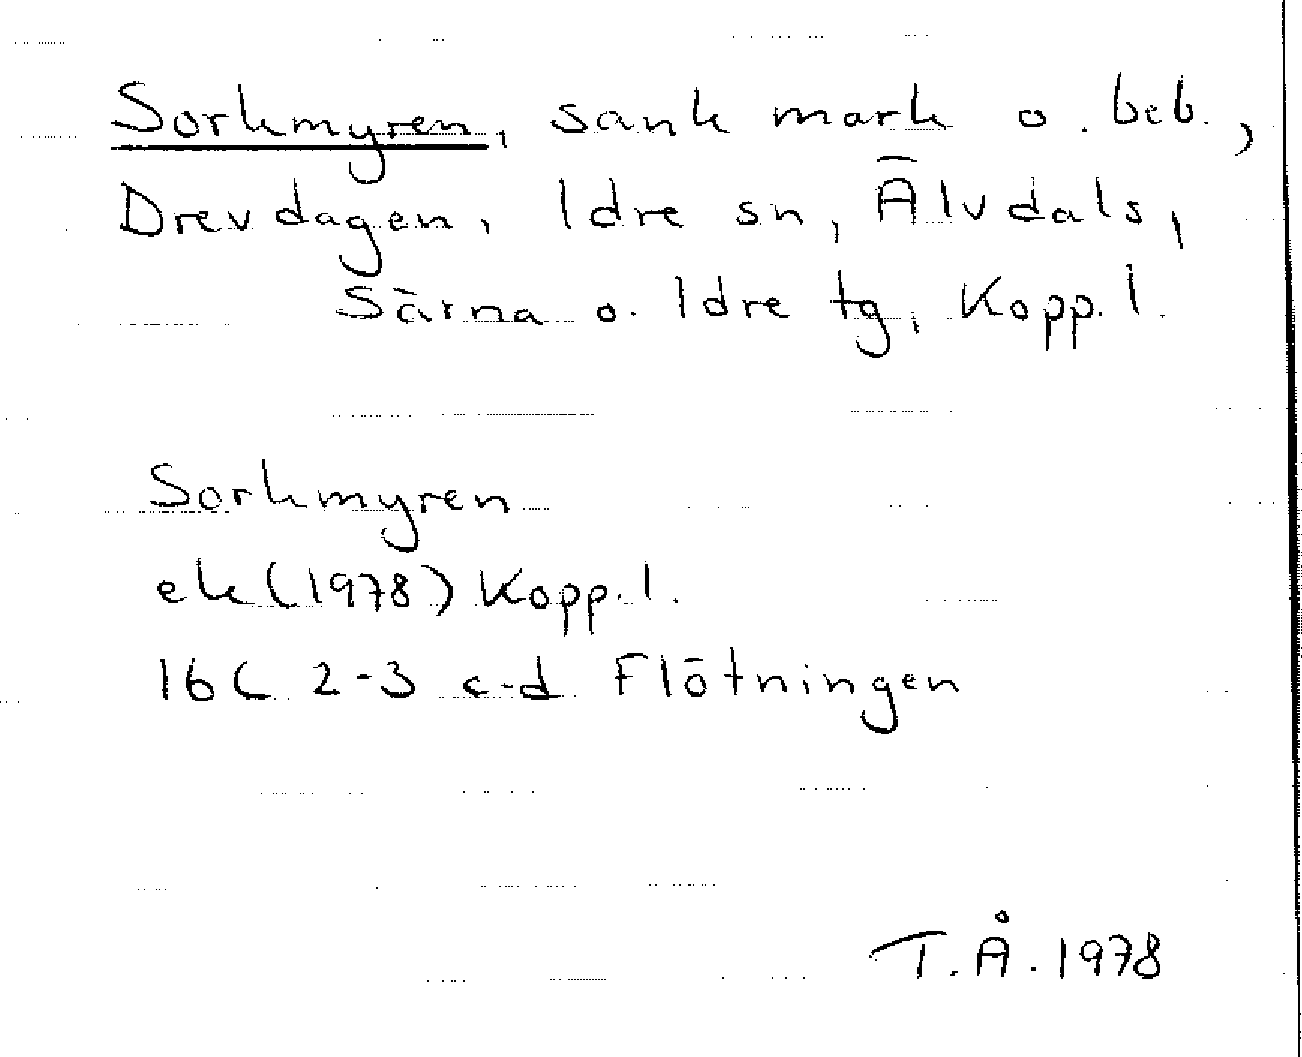 Sorkmyren, sank mark o. beb.,
Drevdagen, Idre sn, Älvdals,
Särna o. Idre tg, Kopp. l.
Sorkmyren
ek (1978) Kopp. l.
16C 2-3 c-d Flötningen
T.Å. 1978